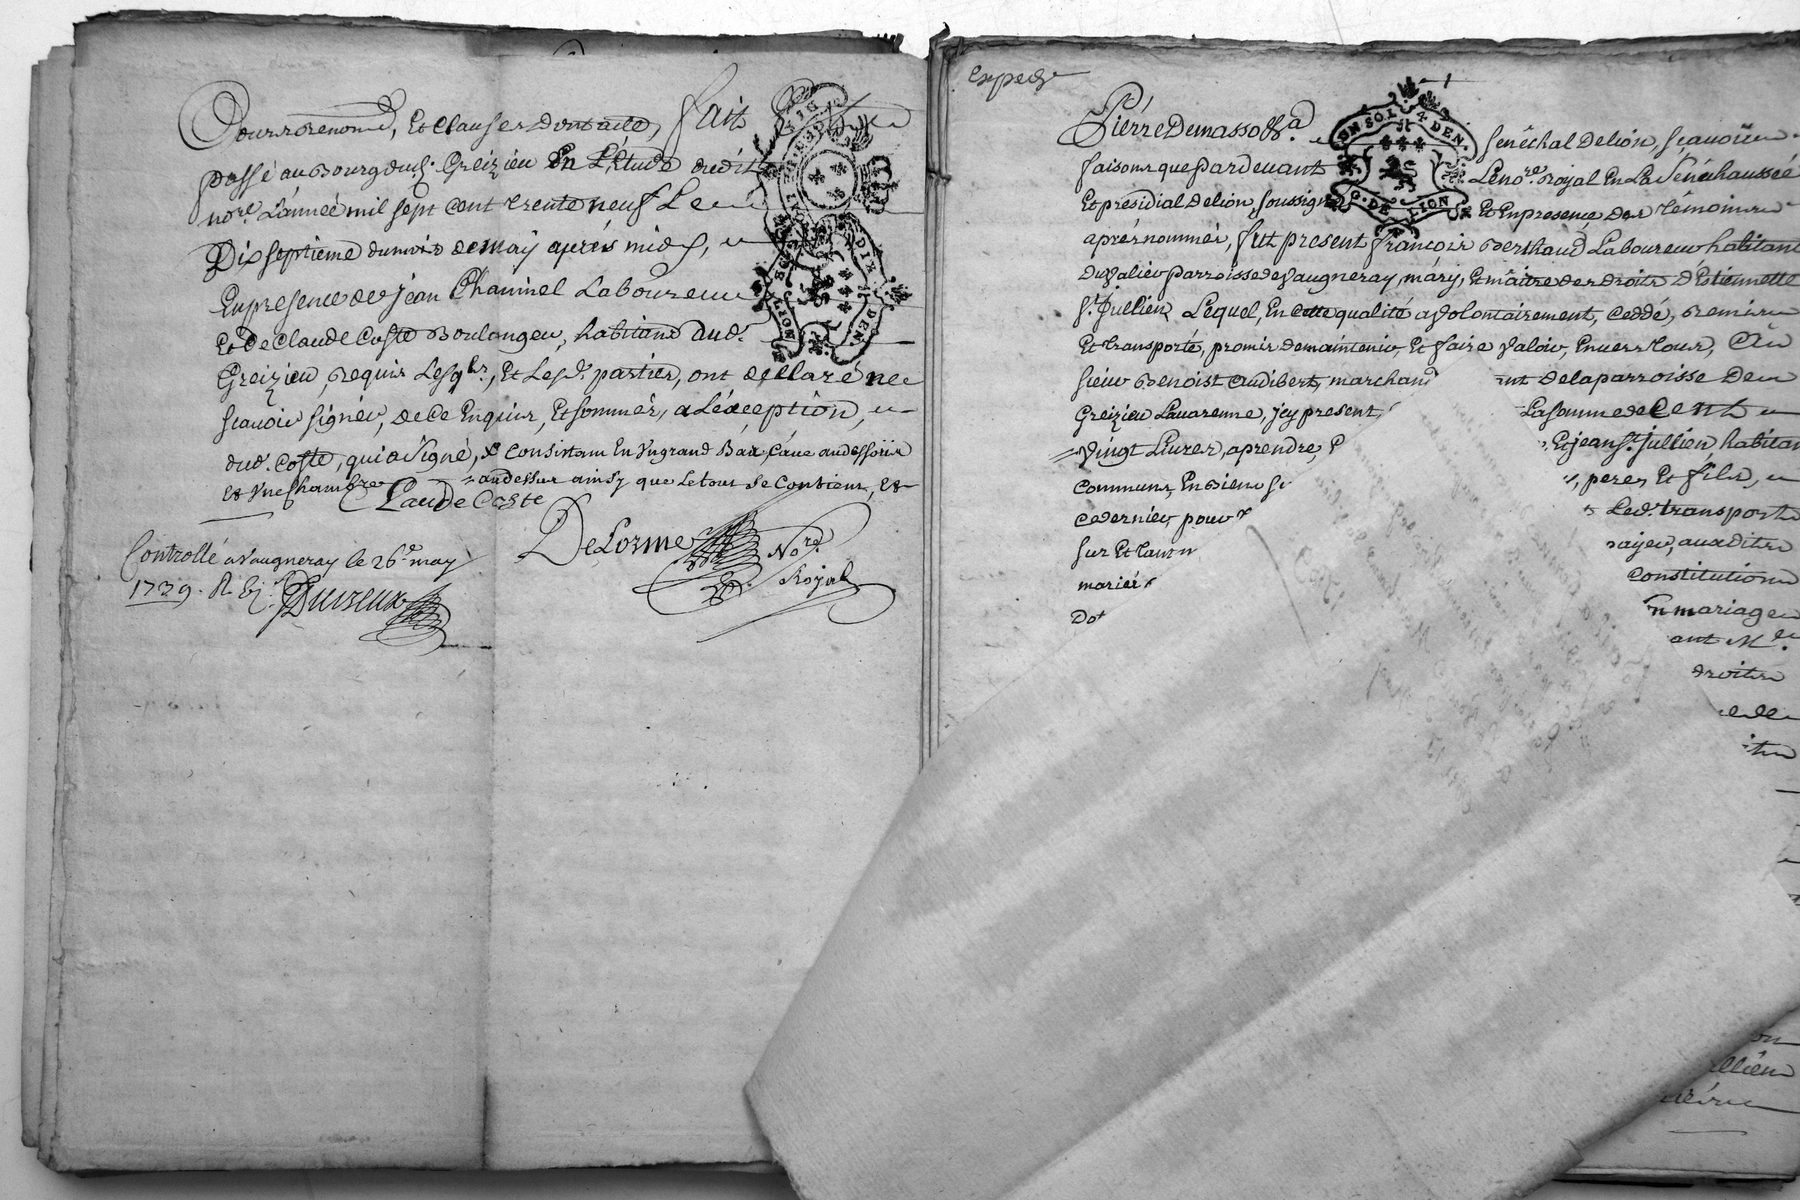 Pour renoncé, Et Clauses Dont acte, fait Et
passé au Bourg dud. Greizieu En L'Etude dudit
nore. L'année mil sept cent trente neuf Le
Dix septieme du mois de may aprés midy,
En presence de jean Chaminel Laboureur
Et De Claude Coste Boulanger, habitans dud.
Greizieu, requis Lesqls., Et Lesd. parties, ont declaré ne
scavoir signer, de ce Enquis, Et sommés, a L'éxception,
dud. Coste, qui a signé, Consistam En Un grand Bas, Cave au dessous
Et Une Chambre au dessus ainsy que Le tout Se Contient, Et
Claude Coste
DeLorme Nore. Royal
Controllé a Vaugneray le 26e may
1739. R.
Exped
Pierre Demasso
UN SOL 4 DEN.
G. DE LION
DIX DEN
senéchal de lion, scavoir
faisons que Pardevant Le nore. Royal En La Sénéchaussée
Et presidial de lion, soussigné Et En presence, des témoins
aprés nommés, fut present françois Berthaud, Laboureur habitant
Du Valier parroisse de Vaugneray, mary, Et maitre des droits D'Estiennette
St. Jullien, Lequel, En Cette qualité a volontairement, Ceddé, remis
Et transporté, promis de maintenir, Et faire Valoir, Envers tous, Au
sieur Benoist Audibert, marchand nt de la parroisse De
Greizieu Lavarenne, jcy present, La somme de Cent
Vingt Livres, a prendre, Et jean St. Jullien, habitan
Communs, En Biens peres, Et fils,
Ce dernier, pouv Led. transport
sur Et tant payer, audit
mariés Constitution
Dot n mariage
ant Me.
droits
elle
ullien